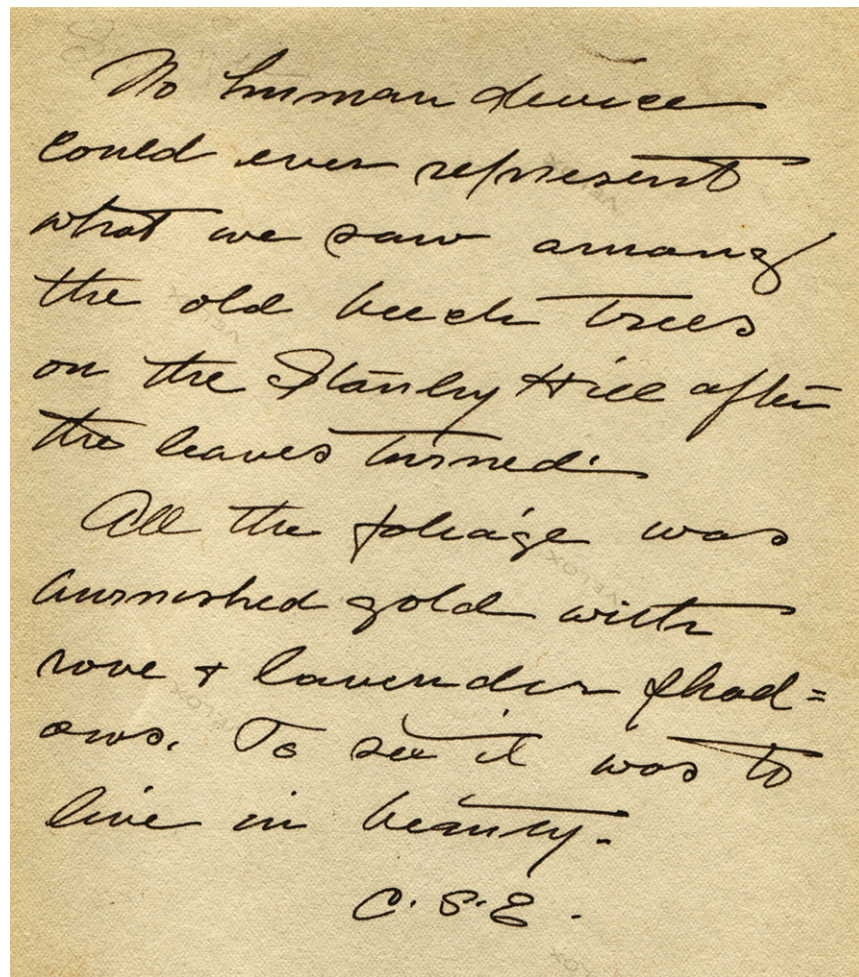 No human device
could ever represent
what we saw among
the old beech trees
on the Stanley Hill after
the leaves turned.
All the foliage was
burnished gold with
rose + lavender shad=
ows. To see it was to
live in beauty.
C.S.E.